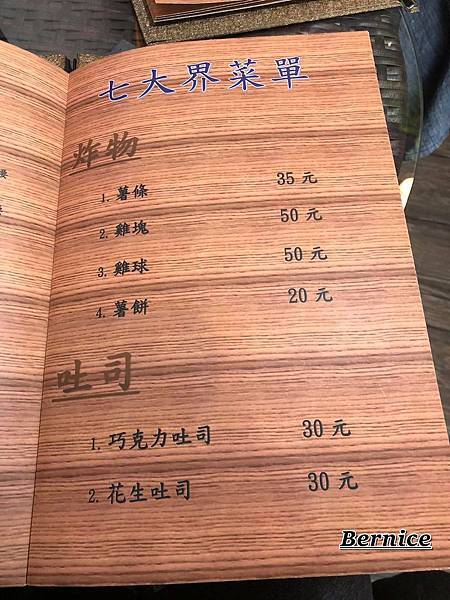 七大界菜單
炸物
1. 薯條 35 元
2. 雞塊 50 元
3. 雞球 50 元
4. 薯餅 20 元
吐司
1. 巧克力吐司 30 元
2. 花生吐司 30 元
Bernice